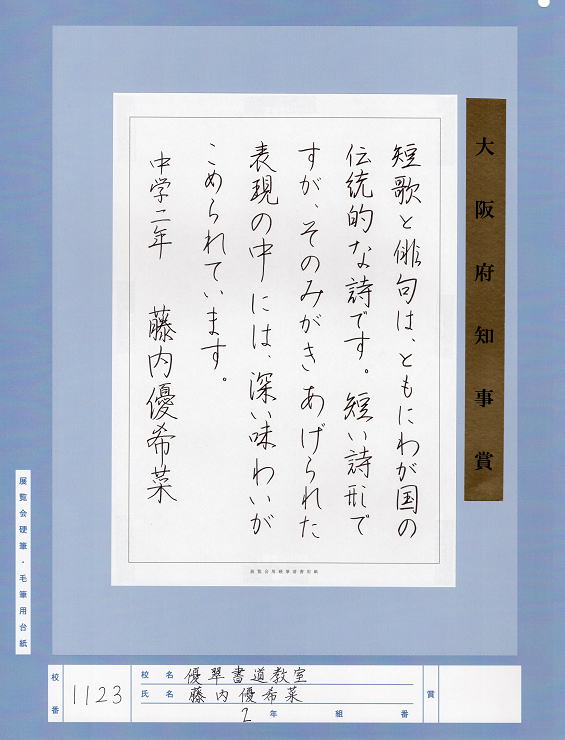 大阪府知事賞
短歌と俳句は、ともにわが国の
伝統的な詩です。短い詩形で
すが、そのみがきあげられた
表現の中には、深い味わいが
こめられています。
中学二年 藤内優希菜
展覧会用硬筆清書用紙
展覧会硬筆・毛筆用台紙
校番 1123
校名 優翠書道教室
氏名 藤内優希菜
2年 組 番
賞